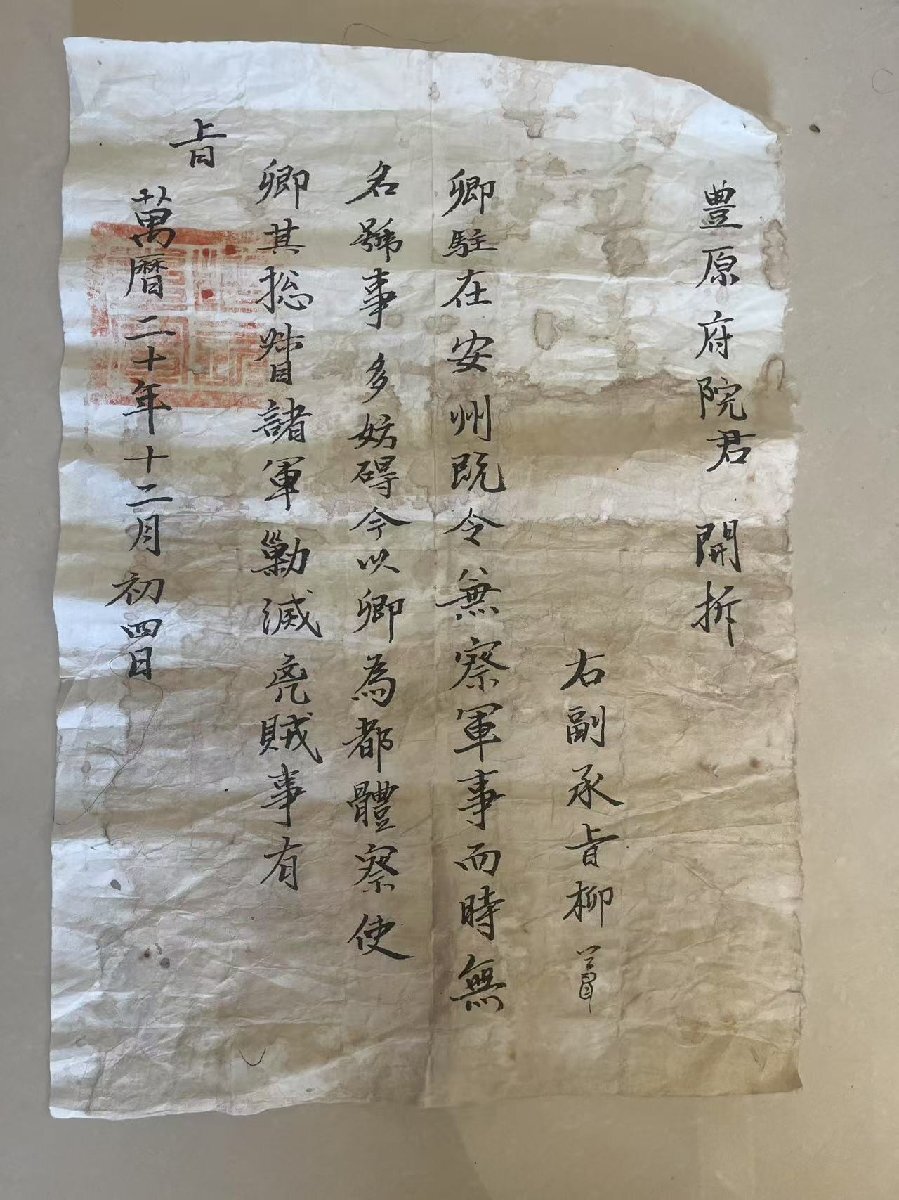 豊原府院君 開拆
右副承旨柳
卿駐在安州既令兼察軍事而時無
名號事多妨碍今以卿為都體察使
卿其捴督諸軍勦滅兇賊事有
旨
萬曆二十年十二月初四日